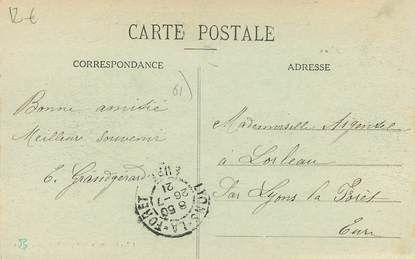 12 €
CARTE POSTALE
CORRESPONDANCE
ADRESSE
61)
Bonne amitié
Meilleur souvenir
E. Grandgerard
Mademoiselle
à Lorleau
Par Lyons la Forêt
Eure
LYONS-LA-FORET
8 50
26-7
21
EURE